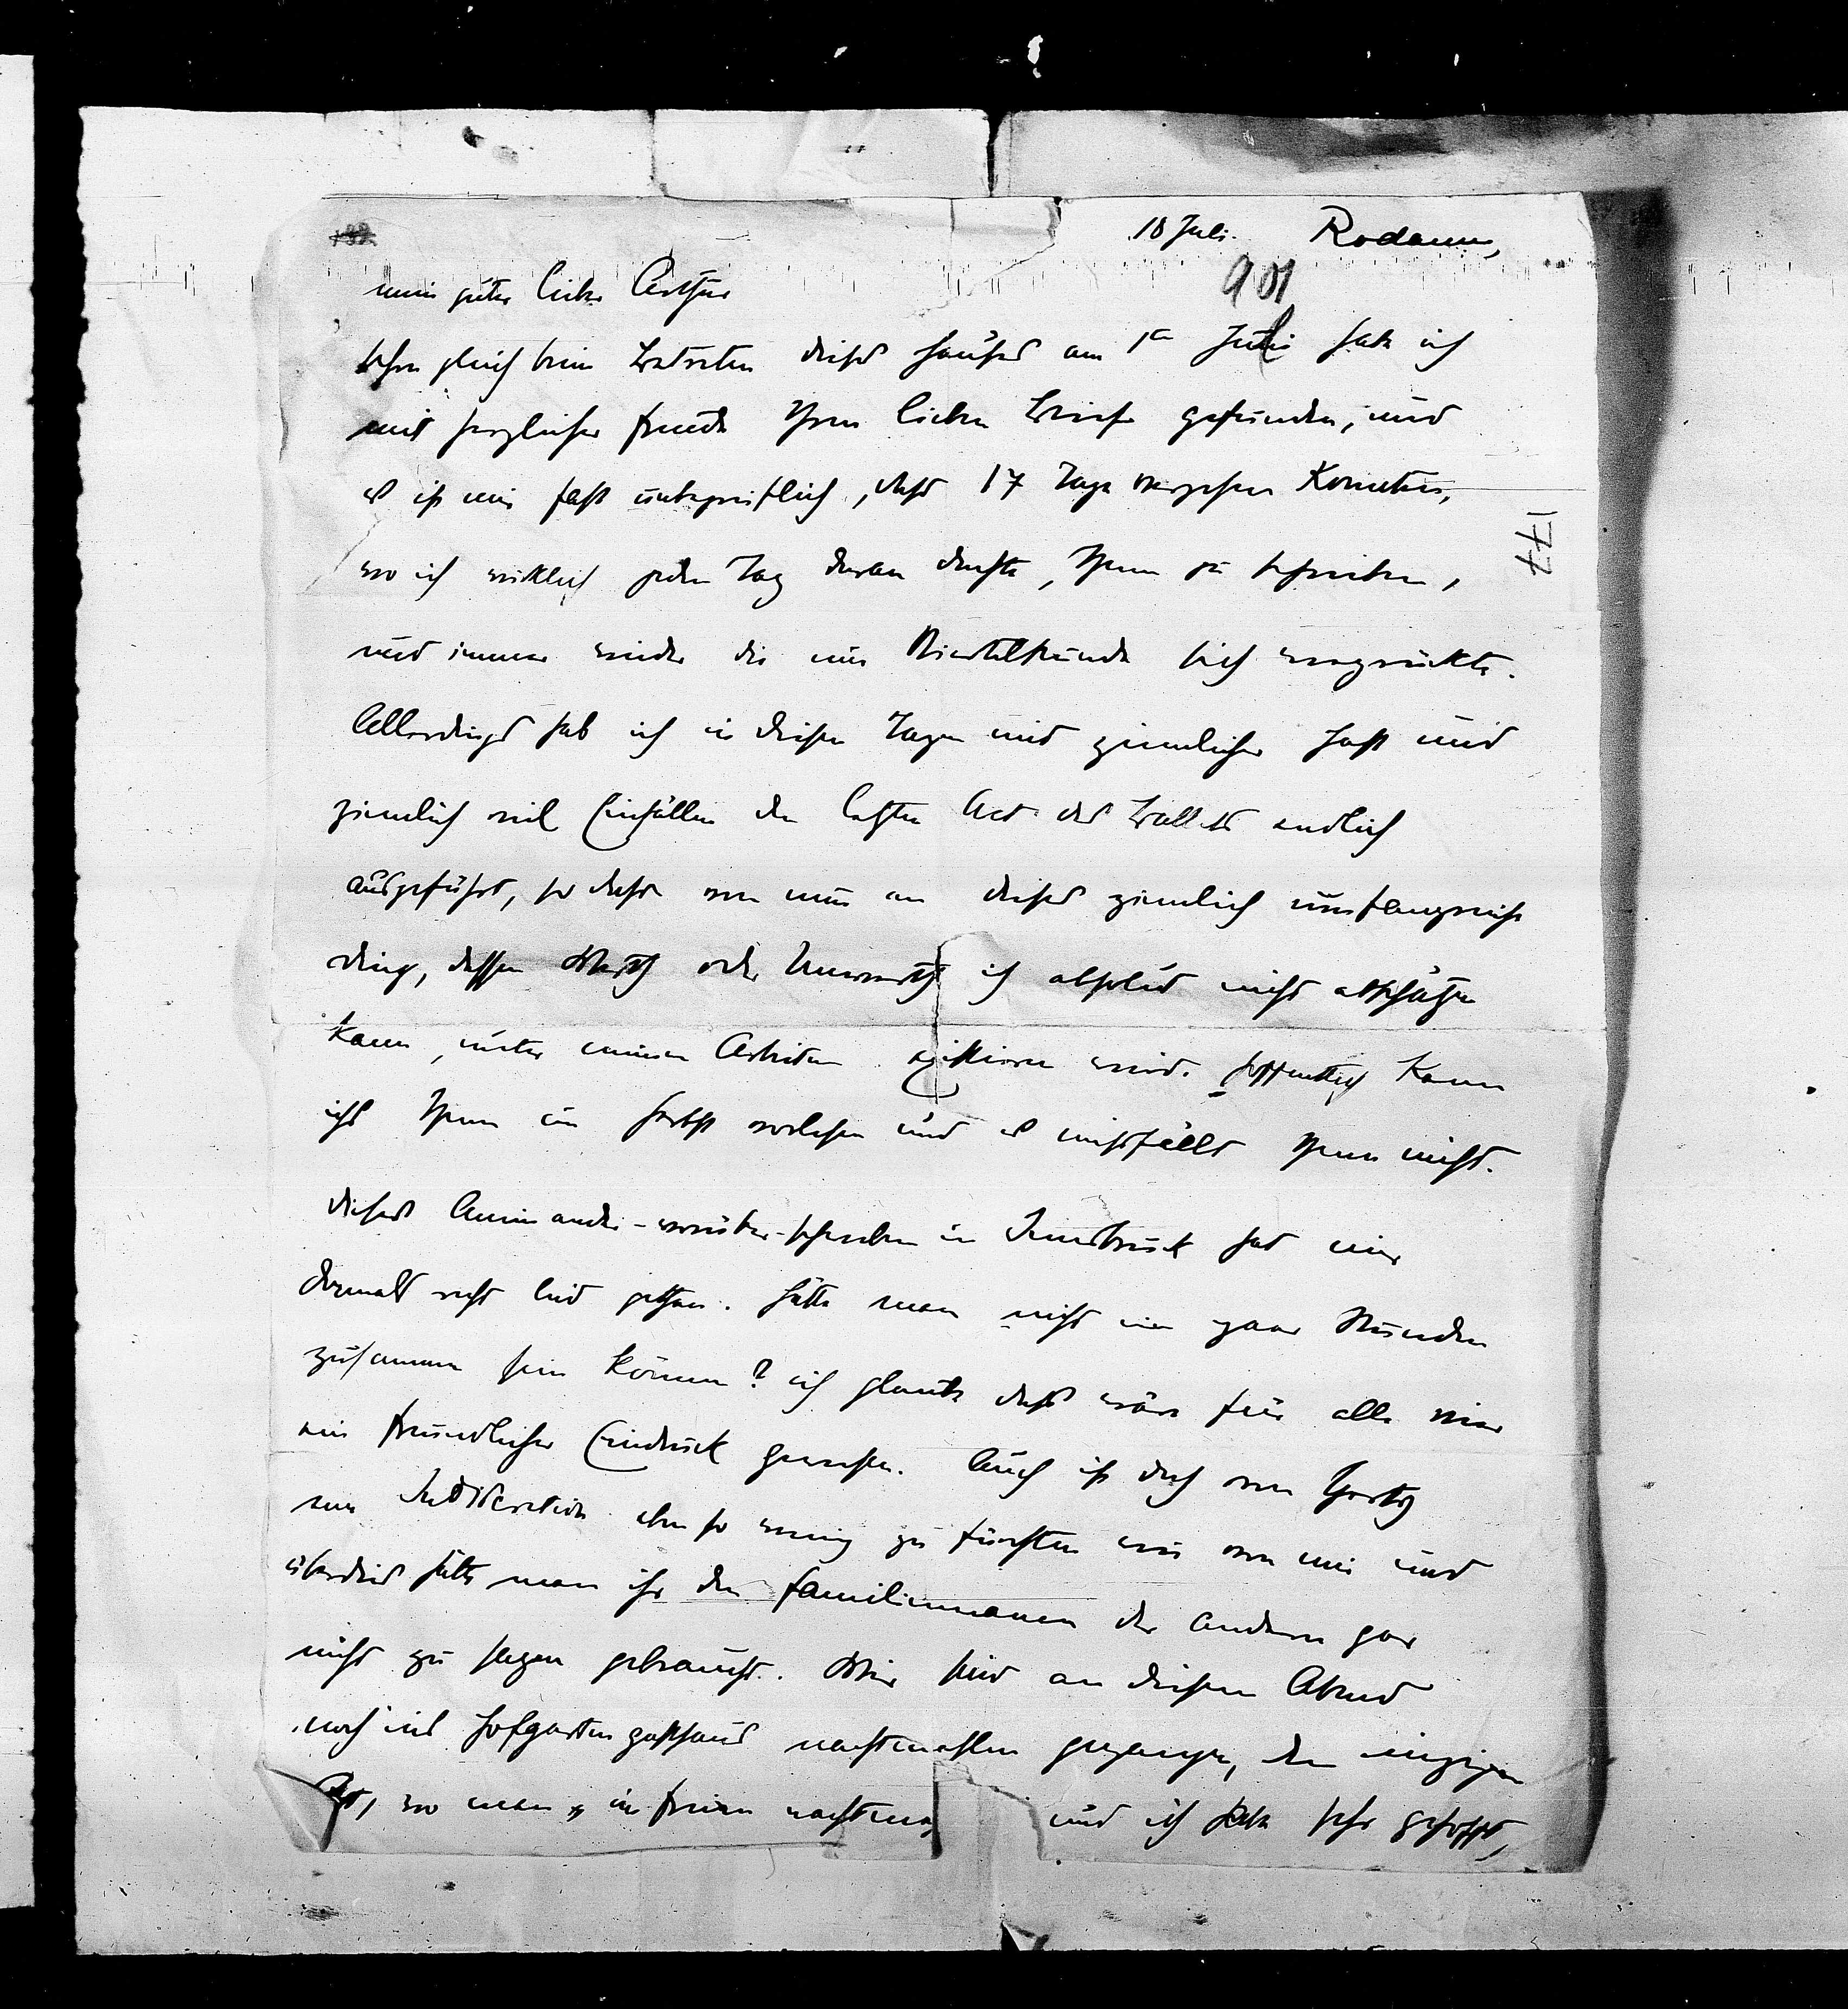 18 Juli. Rodaun,
901
mein guter lieber Arthur
schon gleich beim Betreten dieses Hauses am 1ten Juli hab ich
mit herzlicher Freude Ihren lieben Brief gefunden, und
es ist mir fast unbegreiflich, dass 17 Tage vergehen konnten,
177
wo ich wirklich jeden Tag daran dachte, Ihnen zu schreiben,
und immer wieder die eine Viertelstunde sich wegrückte.
Allerdings hab ich in diesen Tagen mit ziemlicher Hast und
ziemlich viel Einfällen den letzten Act des Ballets endlich
ausgeführt, so dass von nun an dieses ziemlich umfangreiche
Ding, dessen Werth oder Unwerth ich absolut nicht abschätzen
kann, unter meinen Arbeiten existieren wird. Hoffentlich kann
ichs Ihnen im Herbst vorlesen und es missfällt Ihnen nicht.
Dieses Aneinander-vorüber-schweben in Innsbruck hat mir
damals recht leid gethan. Hätte man nicht ein paar Stunden
zusammen sein können? ich glaube das wäre für alle vier
ein freundlicher Eindruck gewesen. Auch ist doch von Gerty
eine Indiscretion eben so wenig zu fürchten wie von mir und
überdies hätte man ihr den Familiennamen der andern gar
nicht zu sagen gebraucht. Wir sind an diesem Abend
noch ins Hofgartengasthaus nachtmahlen gegangen, den einzigen
Ort, wo man im freien nachtma und ich habe sehr gehofft,